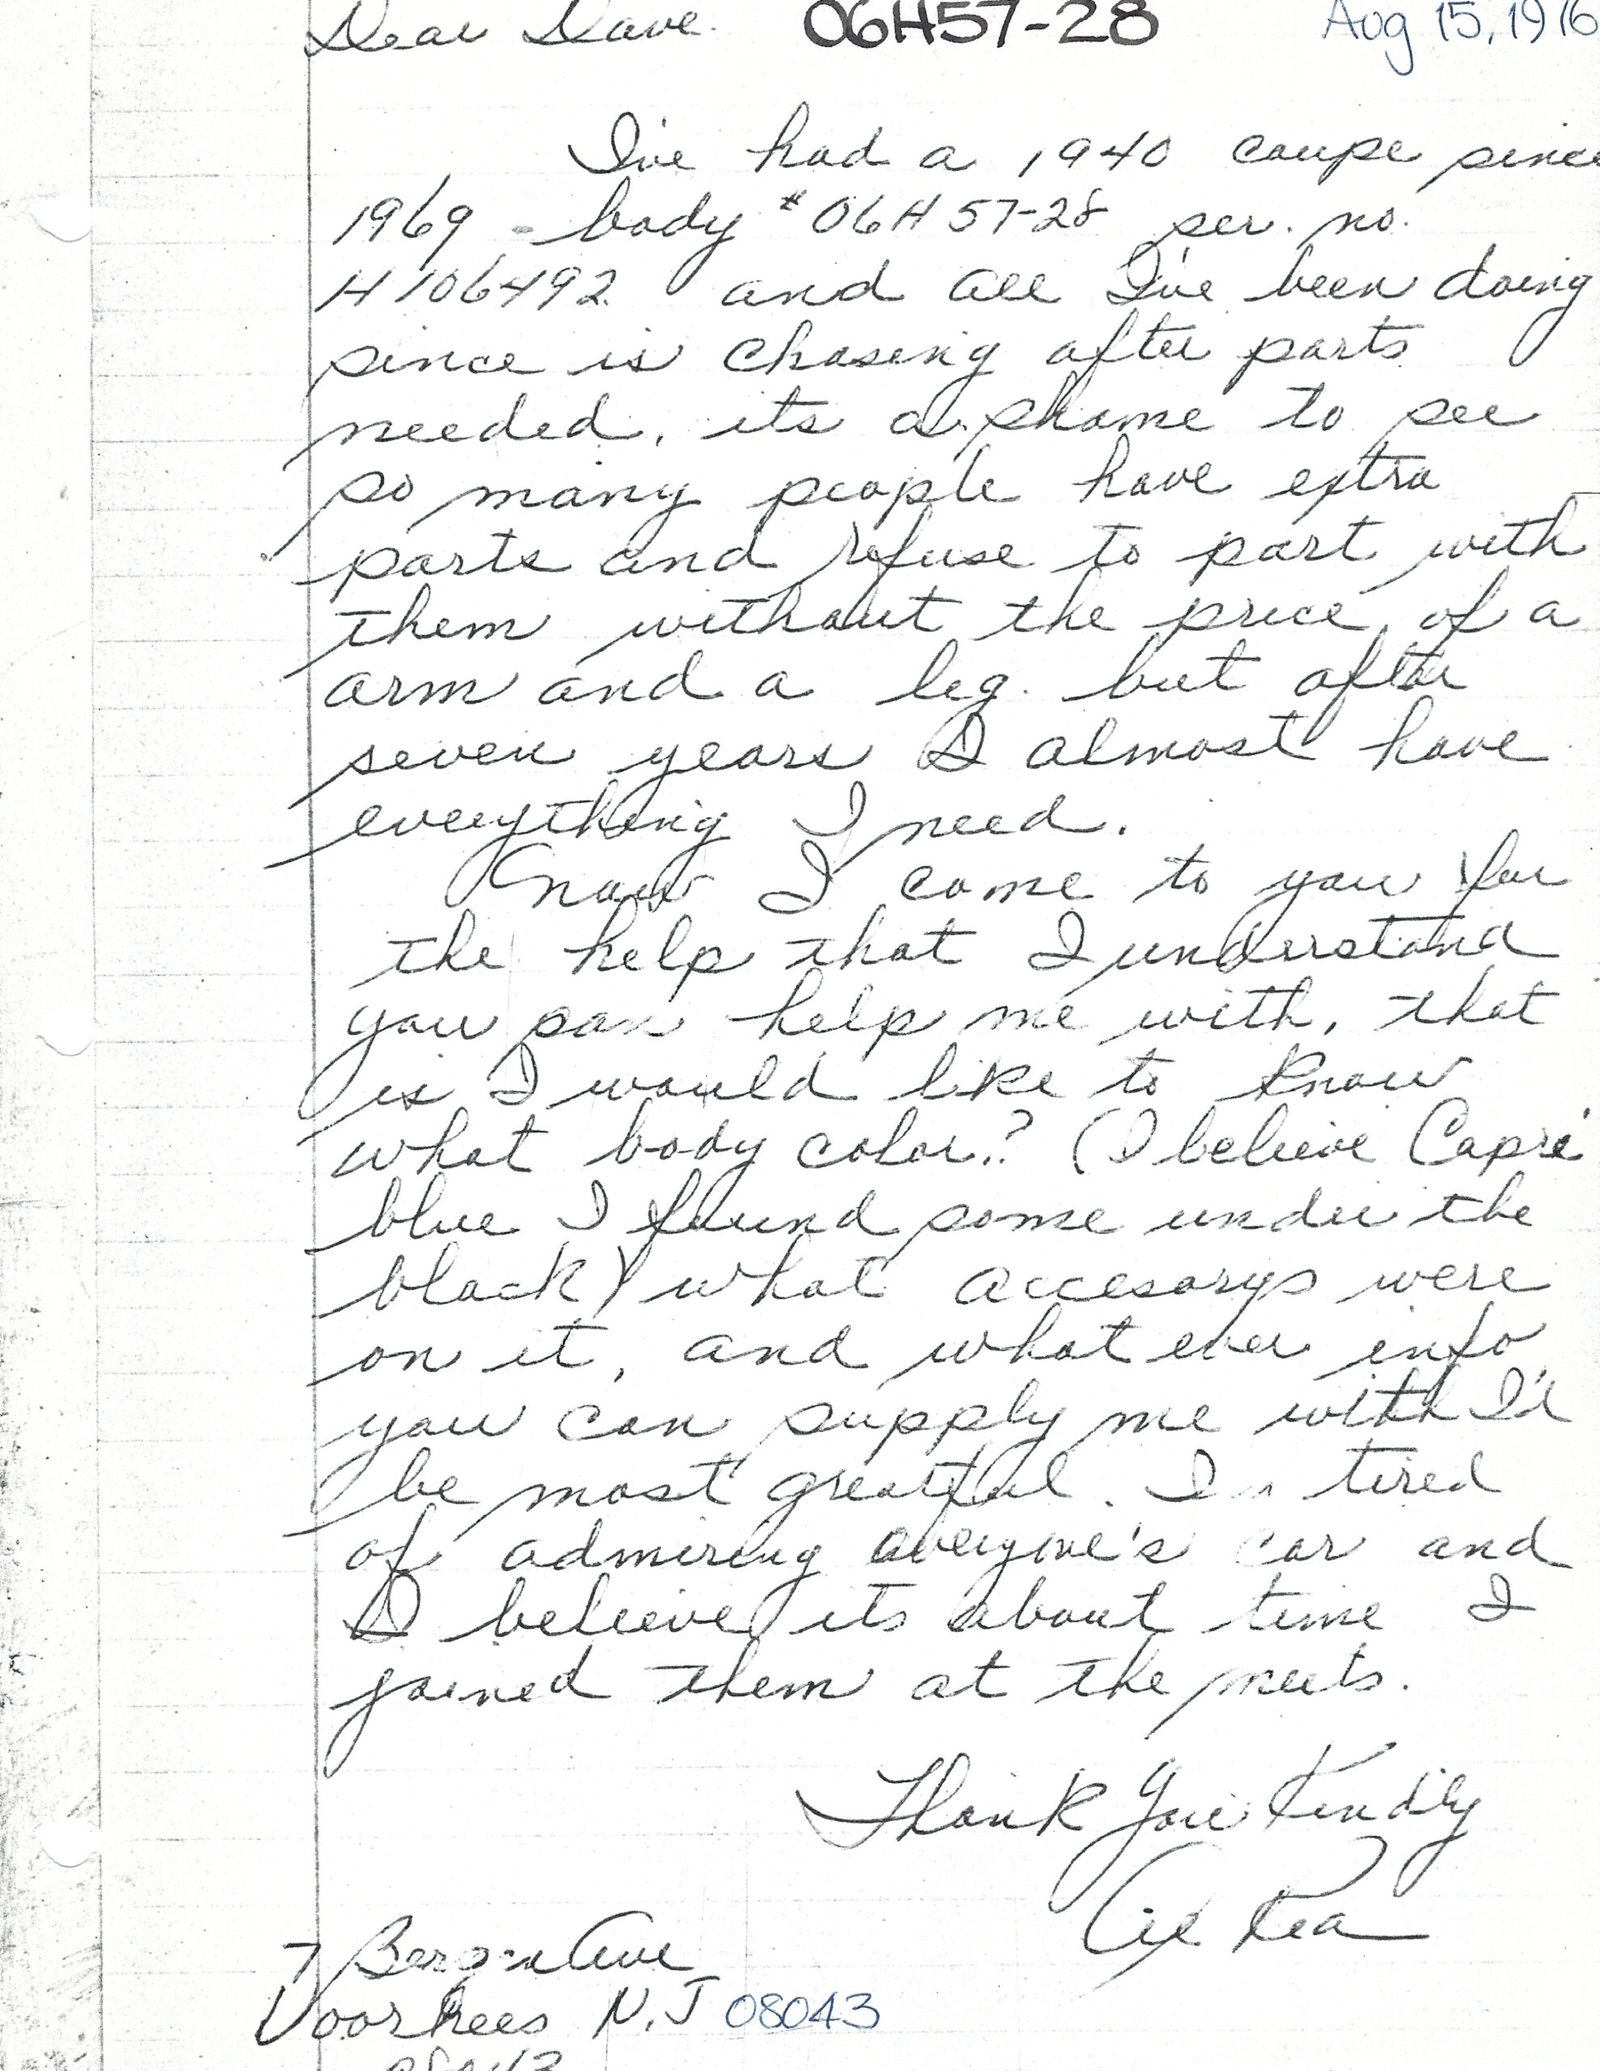 Dear Dave. 06H57-28 Aug 15, 1976
I've had a 1940 coupe since
1969 - body # 06H57-28 ser. no.
H106492. and all I've been doing
since is chasing after parts
needed, its a shame to see
so many people have extra
parts and refuse to part with
them without the price of a
arm and a leg. but after
seven years I almost have
everything I need.
Know I come to you for
the help that I understand
you can help me with, that
is I would like to know
what body color? (I believe Capri
blue I found some under the
black) what accesorys were
on it, and what ever info
you can supply me with I'd
be most greatful. I'm tired
of admiring everyone's car and
I believe its about time I
joined them at the meets.
Thank You Kindly
Al Rea
7 Bergen Ave
Voorhees N.J 08043
08043